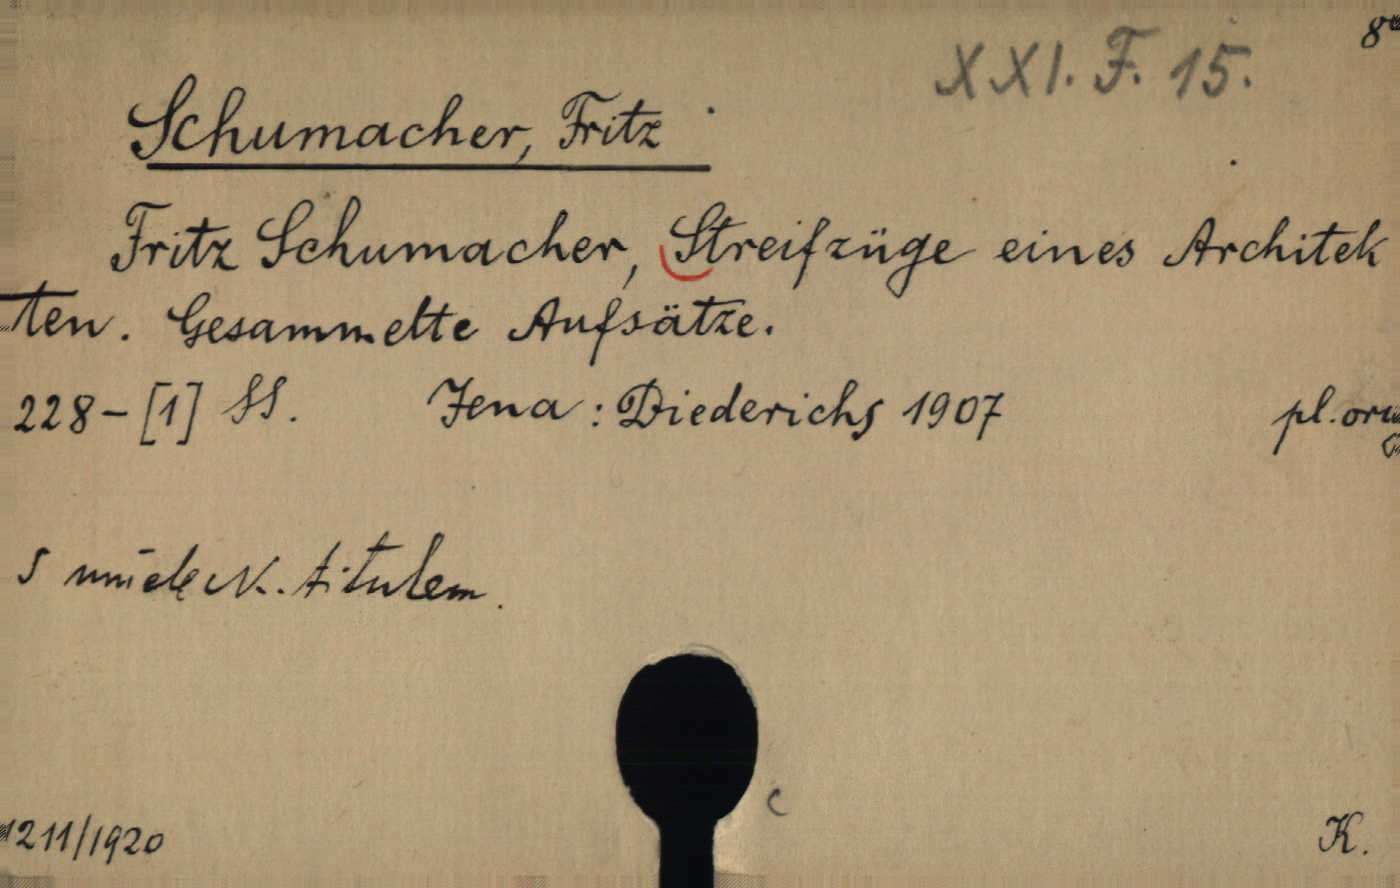 8°
XXI. F. 15.
Schumacher, Fritz
Fritz Schumacher, Streifzüge eines Architek
ten. Gesammelte Aufsätze.
228-[1] SS. Jena: Diederichs 1907 pl. orig
S titulem.
c
1211/1920 K.